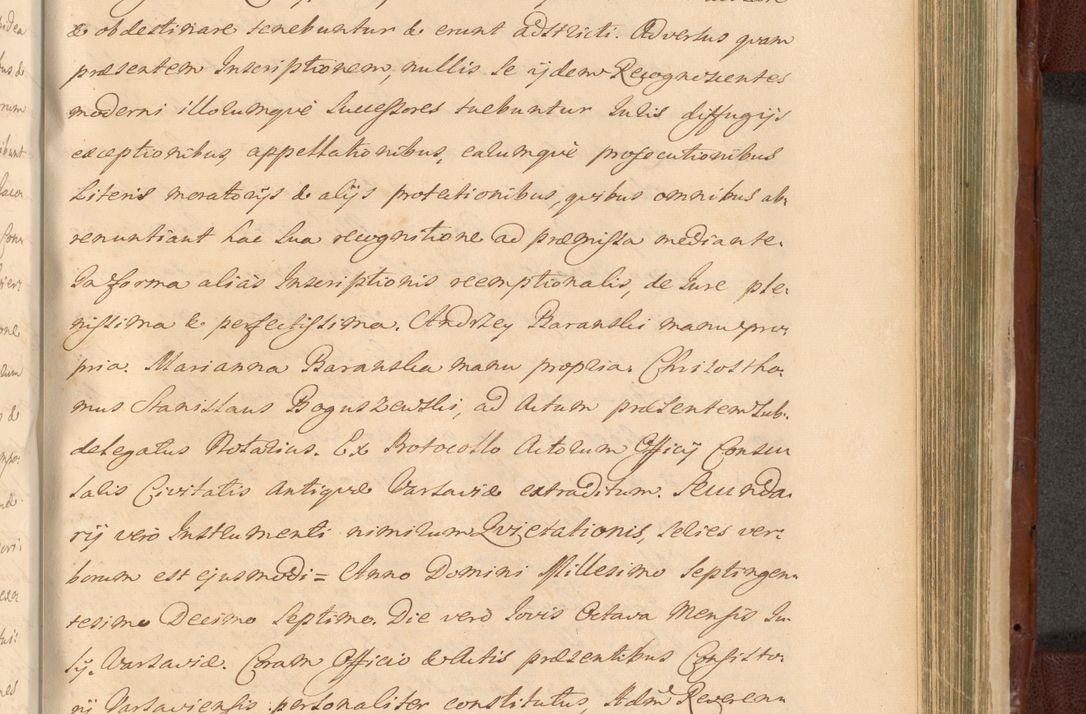 & obdestinare tenebuntur & erunt adstricti. Adversus quam
præsentem Inscriptionem, nullis se ijdem Recognoscentes
moderni illorumquè Successores tuebuntur Iuris diffugijs
exceptionibus, appellationibus, earumquè prosecutionibus
Literis moratorijs & alijs protationibus, quibus omnibus ab,
renuntiant hac sua recognitione ad præmissa mediante.
In forma aliàs Inscriptionis reemptionalis, de Iure ple,
nissima & perfectissima. Andrzey Baranski manu pro,
pria. Marianna Baranska manu propria. Chrizostho,
mus Stanislaus Boguszewski, ad Actum præsentem Sub,
delegatus Notarius. Ex Protocollo Actorum Officij Consu
laris Civitatis Antiquæ Varsaviæ extraditum. Secunda,
rij verò Instrumenti nimirum Quietationis, series ver,
borum est ejusmodi = Anno Domini Millesimo Septingen,
tesimo Decimo Septimo. Die verò Iovis Octava Mensis Iu,
lij. Varsaviæ. Coram Officio & Actis præsentibus Consisto,
rij Varsaviensis personaliter constitutus, Adm Reveren,